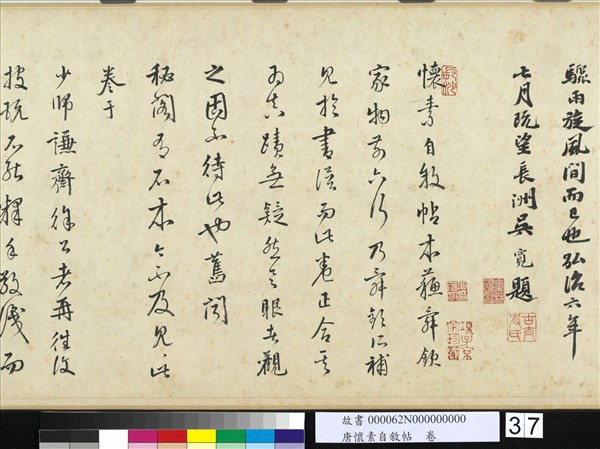 驟雨旋風間而已也弘治六年
七月既望長洲吳寬題
懷素自敘帖本蘇舜欽
家物前六行乃舜欽所補
見於書譜而此卷正合其
為真蹟無疑然具眼者觀
之固不待此也舊聞
秘閣有石本今不及見此
卷于
少師謙齋徐公者再往復
披玩不能釋手敬識而
故書 000062N000000000
唐懷素自敘帖 卷
37